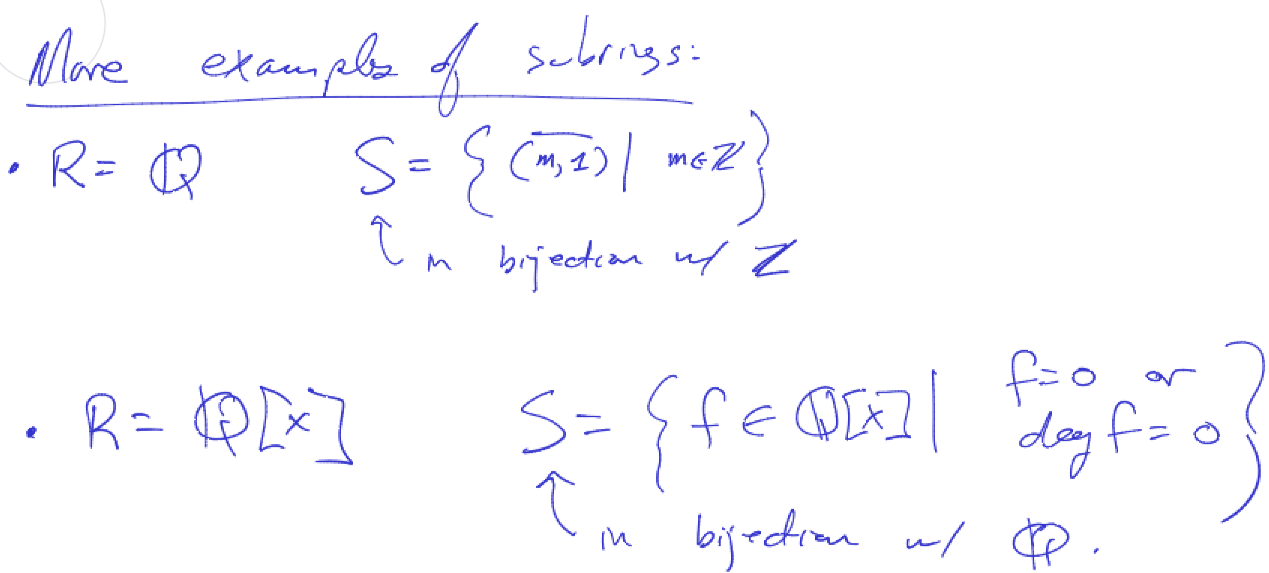 More examples of subrings:
• R = ℚ S = { \overline{(m,1)} | m ∈ ℤ }
↑ in bijection w/ ℤ
• R = ℚ[x] S = { f ∈ ℚ[x] | f = 0 or deg f = 0 }
↑ in bijection w/ ℚ.